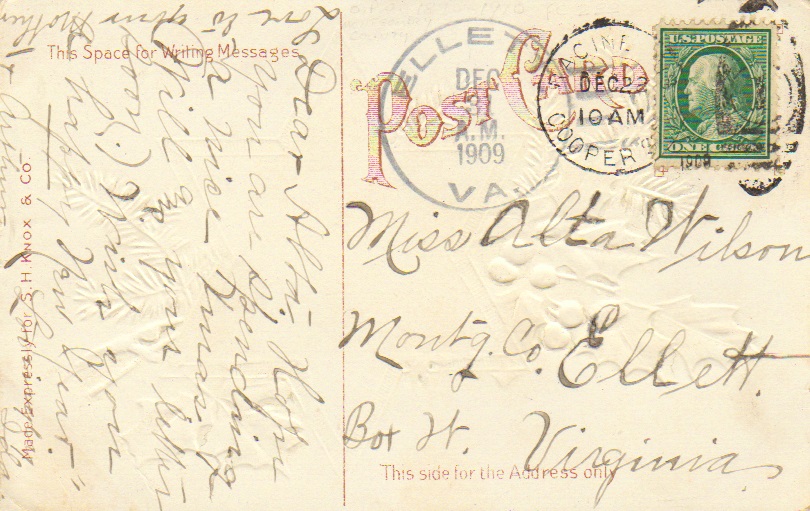 This Space for Writing Messages
POST CARD
ELLETT
DEC
A.M.
1909
VA.
RACINE
DEC 22
10 AM
COOPER
U.S. POSTAGE
ONE
1909
Dear Alta- Hope
you are spending
a nice Xmas.
Will ans. your letter
soon. Wish you
a happy New Year-
Love to your Mother
Miss Alta Wilson
Montg. Co. Ellett.
Box 4. Virginia
Made Expressly for S. H. KNOX & CO.
This side for the Address only